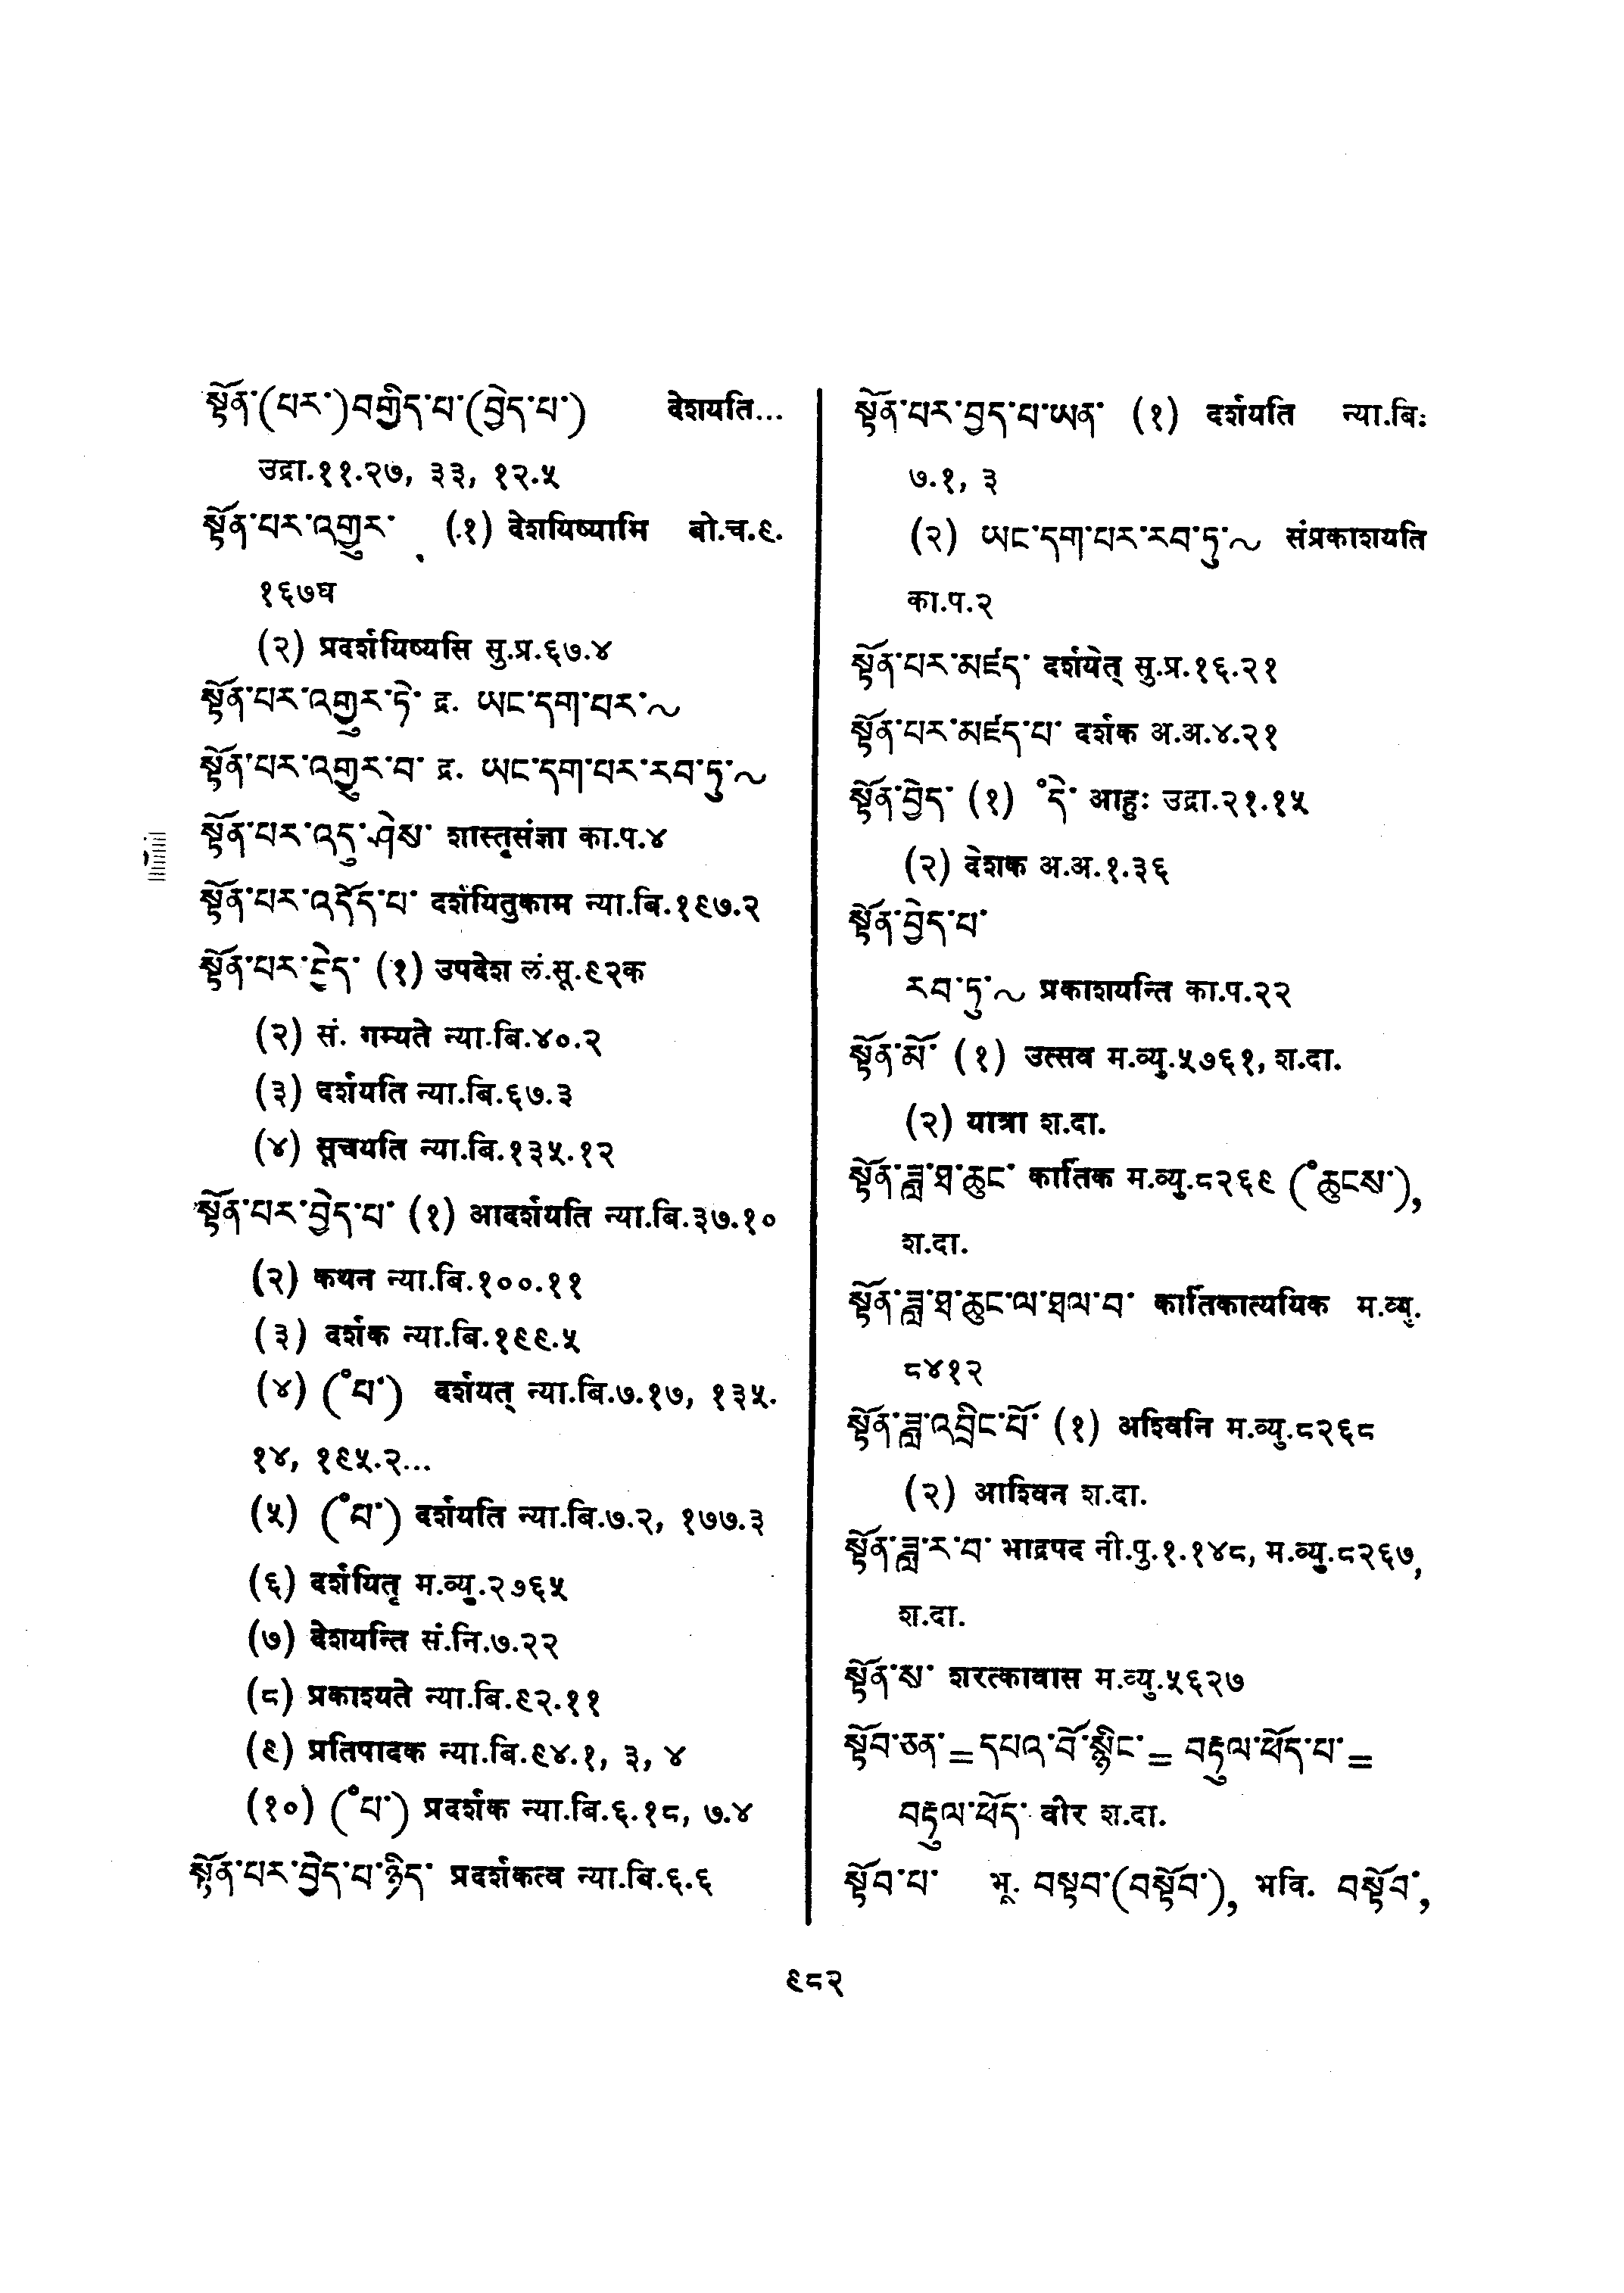 སྟོན་(པར་)བགྱིད་པ་(བྱེད་པ་) देशयति...
उद्रा.११.२७, ३३, १२.५
སྟོན་པར་འགྱུར་ (१) देशयिष्यामि बो.च.९.
१६७घ
(२) प्रदर्शयिष्यसि सु.प्र.६७.४
སྟོན་པར་འགྱུར་ཏེ་ द्र. ཡང་དག་པར་~
སྟོན་པར་འགྱུར་བ་ द्र. ཡང་དག་པར་རབ་ཏུ་~
སྟོན་པར་འདུ་ཤེས་ शास्तृसंज्ञा का.प.४
སྟོན་པར་འདོད་པ་ दर्शयितुकाम न्या.बि.१९७.२
སྟོན་པར་བྱེད་ (१) उपदेश लं.सू.९२क
(२) सं. गम्यते न्या.बि.४०.२
(३) दर्शयति न्या.बि.६७.३
(४) सूचयति न्या.बि.१३५.१२
སྟོན་པར་བྱེད་པ་ (१) आदर्शयति न्या.बि.३७.१०
(२) कथन न्या.बि.१००.११
(३) दर्शक न्या.बि.१९९.५
(४) (°པ་) दर्शयत् न्या.बि.७.१७, १३५.
१४, १९५.२...
(५) (°པ་) दर्शयति न्या.बि.७.२, १७७.३
(६) दर्शयितृ म.व्यु.२७६५
(७) देशयन्ति सं.नि.७.२२
(८) प्रकाश्यते न्या.बि.९२.११
(९) प्रतिपादक न्या.बि.९४.१, ३, ४
(१०) (°པ་) प्रदर्शक न्या.बि.६.१८, ७.४
སྟོན་པར་བྱེད་པ་ཉིད་ प्रदर्शकत्व न्या.बि.६.६
སྟོན་པར་བྱད་པ་ཡན་ (१) दर्शयति न्या.बि:
७.१, ३
(२) ཡང་དག་པར་རབ་ཏུ་~ संप्रकाशयति
का.प.२
སྟོན་པར་མཛད་ दर्शयेत् सु.प्र.१६.२१
སྟོན་པར་མཛད་པ་ दर्शक अ.अ.४.२१
སྟོན་བྱེད་ (१) °དེ་ आहुः उद्रा.२१.१५
(२) देशक अ.अ.१.३६
སྟོན་བྱེད་པ་
རབ་ཏུ་~ प्रकाशयन्ति का.प.२२
སྟོན་མོ་ (१) उत्सव म.व्यु.५७६१, श.दा.
(२) यात्रा श.दा.
སྟོན་ཟླ་ཐ་ཆུང་ कार्तिक म.व्यु.८२६९ (°ཆུངས་),
श.दा.
སྟོན་ཟླ་ཐ་ཆུང་ལ་ཐལ་བ་ कार्तिकात्ययिक म.व्यु.
८४१२
སྟོན་ཟླ་འབྲིང་པོ་ (१) अश्विनि म.व्यु.८२६८
(२) आश्विन श.दा.
སྟོན་ཟླ་ར་བ་ भाद्रपद नी.पु.१.१४८, म.व्यु.८२६७,
श.दा.
སྟོན་ས་ शरत्कावास म.व्यु.५६२७
སྟོབ་ཅན་= དཔའ་བོ་སྙིང་= བརྟུལ་ཕོད་པ་=
བརྟུལ་ཕོད་ वीर श.दा.
སྟོབ་པ་ भू. བསྟབ་(བསྟོབ་), भवि. བསྟོབ་,
९८२